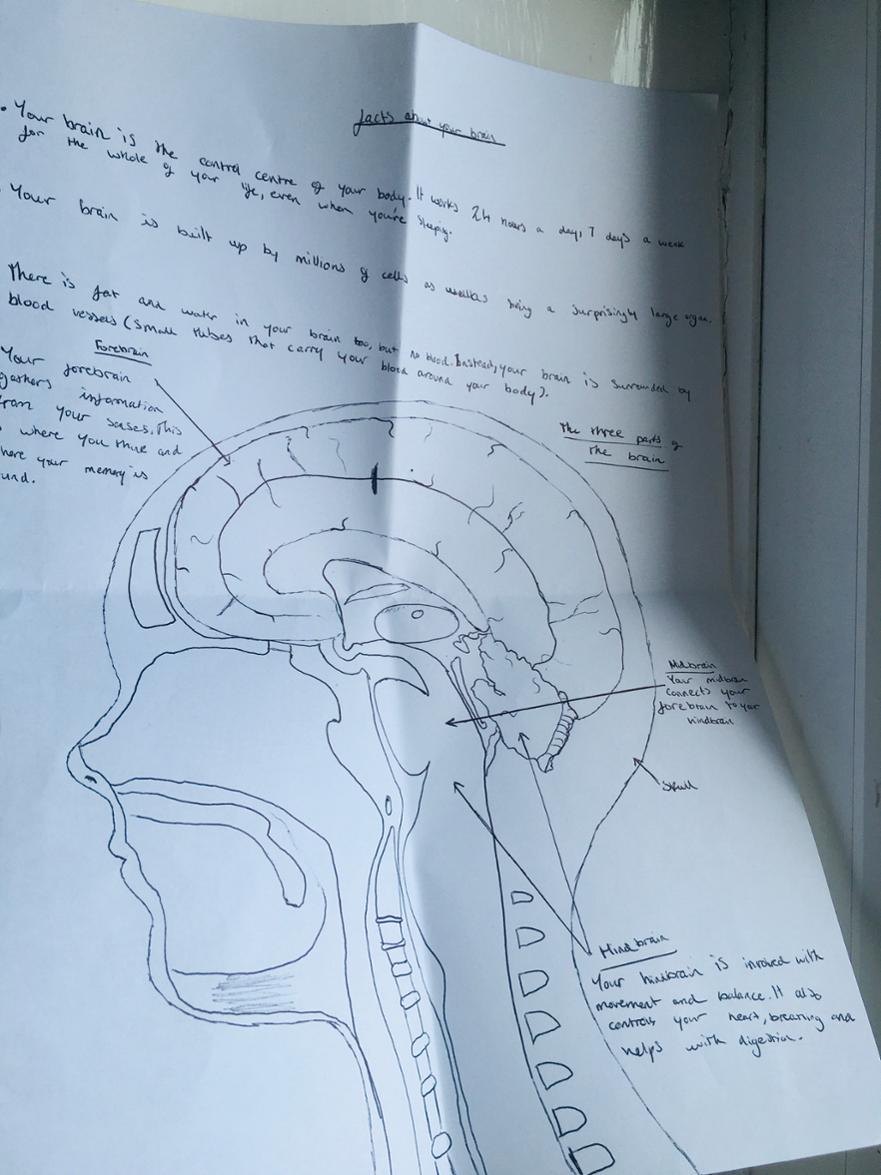 facts about your brain
• Your brain is the control centre of your body. It works 24 hours a day, 7 days a week
for the whole of your life, even when you're sleeping.
Your brain is built up by millions of cells as wellas being a surprisingly large organ.
There is fat and water in your brain too, but no blood. Instead, your brain is surrounded by
blood vessels (small tubes that carry your blood around your body).
Forebrain
Your forebrain
gathers information
from your senses. This
where you think and
here your memory is
und.
The three parts of
the brain
Midbrain
Your midbrain
connects your
forebrain to your
hindbrain
Skull
Hindbrain
Your hindbrain is invoved with
movement and balance. It also
controls your heart, breathing and
helps with digestion.